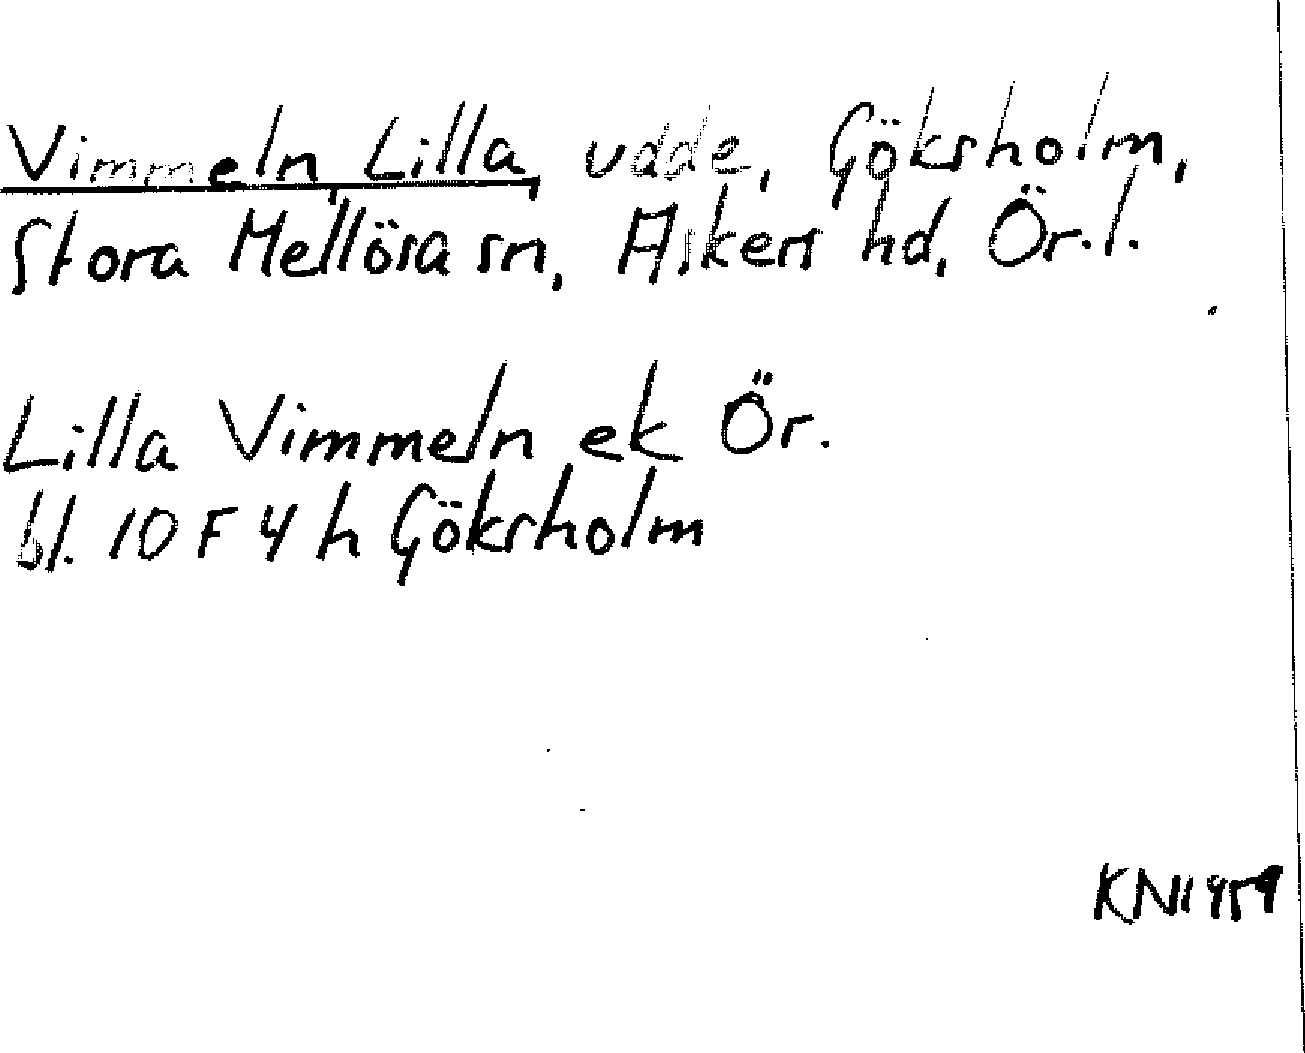 Vimmeln, Lilla, udde, Göksholm,
Stora Mellösa sn, Askers hd, Ör.l.
Lilla Vimmeln ek Ör.
bl. 10 F 4 h Göksholm
KN 1959